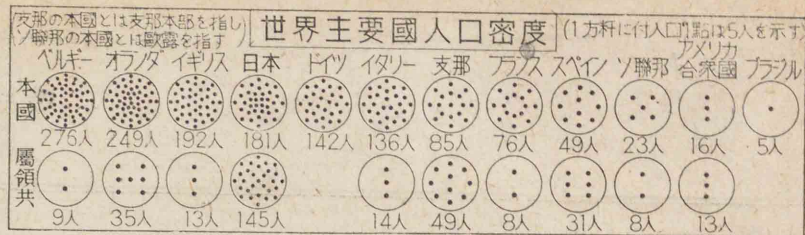 (支那の本國とは支那本部を指し
ソ聯邦の本國とは歐露を指す)
世界主要國人口密度
(1方粁に付人口,點は5人を示す)
ベルギー オランダ イギリス 日本 ドイツ イタリー 支那 フランス スペイン ソ聯邦 アメリカ合衆國 ブラジル
本國
276人 249人 192人 181人 142人 136人 85人 76人 49人 23人 16人 5人
屬領共
9人 35人 13人 145人 14人 49人 8人 31人 8人 13人